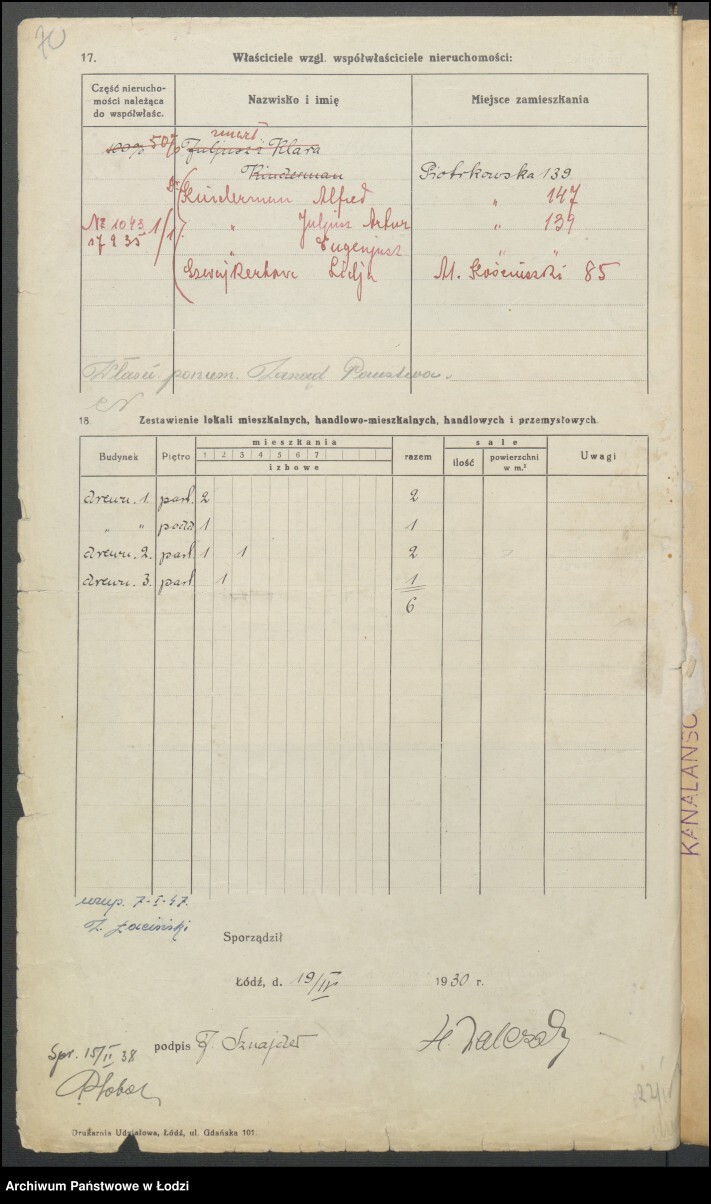 70
17. Właściciele wzgl. współwłaściciele nieruchomości:
Część nierucho-
mości należąca
do współwłaśc.
Nazwisko i imię
Miejsce zamieszkania
zmarł
100% 50% Juljusz i Klara
Kinderman Piotrkowska 139
Dr Kinderman Alfred " 147
№ 1043 1/1 " Juljusz Artur " 139
17 9 35 " Eugenjusz " "
Szwajkertowa Lidja Al. Kościuszki 85
Zarząd
18. Zestawienie lokali mieszkalnych, handlowo-mieszkalnych, handlowych i przemysłowych.
Budynek Piętro mieszkania razem sale Uwagi
1 2 3 4 5 6 7
izbowe
ilość powierzchni
w m.²
drewn. 1. part. 2 2
" " podd 1 1
drewn. 2. part 1 1 2
drewn. 3. part 1 1
6
uzup. 7-I-47.
Sporządził
Łódź, d. 19/IV 1930 r.
podpis Sznajder
Spr. 15/II 38
Drukarnia Udziałowa, Łódź, ul. Gdańska 101.
KANALANSC
Archiwum Państwowe w Łodzi